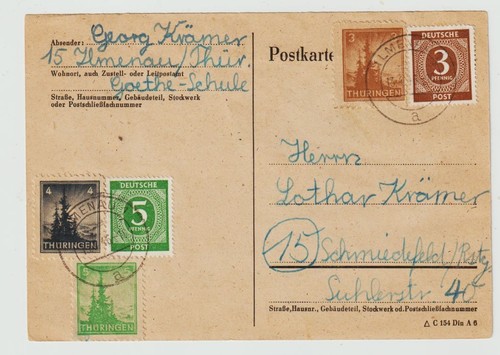 Absender: Georg Krämer
15 Ilmenau/Thür.
Wohnort, auch Zustell- oder Leitpostamt
Goethe-Schule
Straße, Hausnummer, Gebäudeteil, Stockwerk
oder Postschließfachnummer
Postkarte
3
THÜRINGEN
DEUTSCHE
3
PFENNIG
POST
ILMENAU
a
4 4
THÜRINGEN
DEUTSCHE
5
PFENNIG
POST
a
THÜRINGEN
Herrn
Lothar Krämer
15 Schmiedefeld/Rstg
Suhlerstr 40
Straße, Hausnr., Gebäudeteil, Stockwerk od. Postschließfachnummer
△ C 154 Din A 6